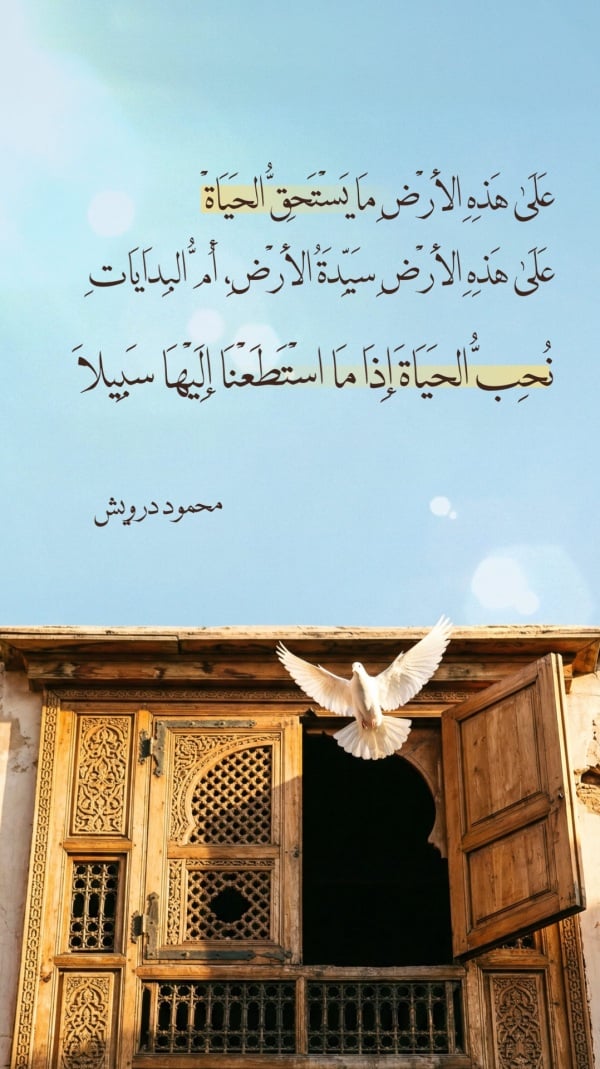 عَلَىٰ هَذِهِ الأرْضِ مَا يَسْتَحِقُّ الحَيَاةْ
عَلَىٰ هَذِهِ الأرْضِ سَيِّدَةُ الأرْضِ، أُمُّ البِدَايَاتِ
نُحِبُّ الحَيَاةَ إِذَا مَا اسْتَطَعْنَا إِلَيْهَا سَبِيلاَ
محمود درويش